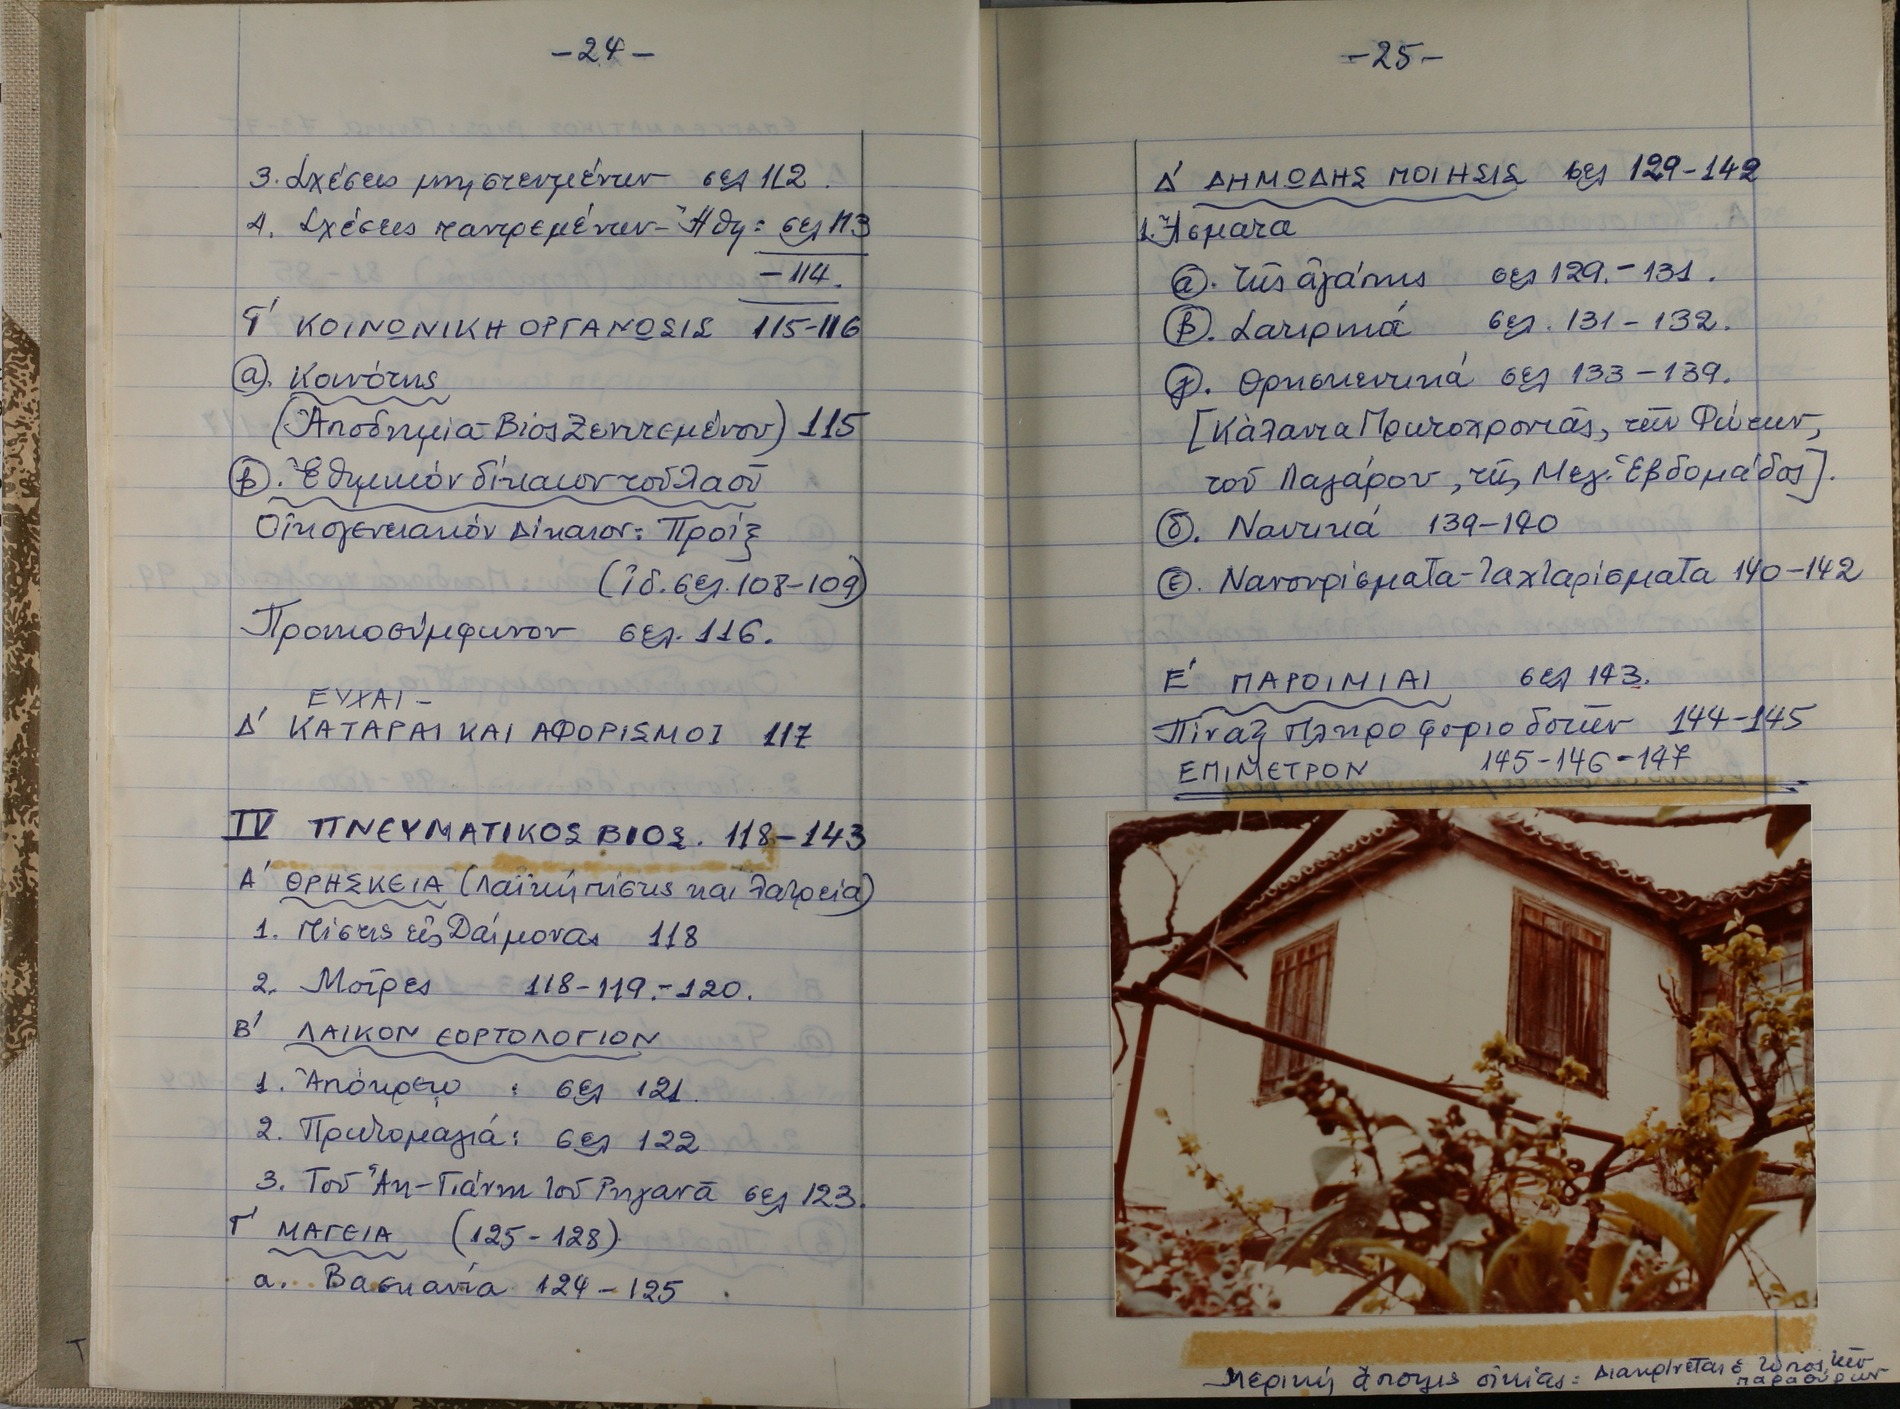 -24-
3. Σχέσεις μνηστευμένων σελ 112.
4. Σχέσεις παντρεμένων - Ἤθη: σελ 113
-114.
Γ' ΚΟΙΝΩΝΙΚΗ ΟΡΓΑΝΩΣΙΣ 115-116
α). Κοινότης
(Ἀποδημία-Βίος Ξενιτεμένου) 115
β). Ἐθιμικόν δίκαιον τοῦ λαοῦ
Οἰκογενειακόν Δίκαιον: Προίξ
(ἰδ. σελ. 108-109)
Προικοσύμφωνον σελ. 116.
ΕΥΧΑΙ -
Δ' ΚΑΤΑΡΑΙ ΚΑΙ ΑΦΟΡΙΣΜΟΙ 117
IV ΠΝΕΥΜΑΤΙΚΟΣ ΒΙΟΣ. 118-143
Α' ΘΡΗΣΚΕΙΑ (Λαϊκή πίστις και λατρεία)
1. Πίστις εἰς Δαίμονας 118
2. Μοῖρες 118-119.-120.
Β' ΛΑΙΚΟΝ ΕΟΡΤΟΛΟΓΙΟΝ
1. Ἀπόκρεῳ : σελ 121.
2. Πρωτομαγιά: σελ 122
3. Τοῦ Ἅη-Γιάννη τοῦ Ριγανᾶ σελ 123.
Γ' ΜΑΓΕΙΑ (125-128)
α. Βασκανία 124-125
-25-
Δ' ΔΗΜΩΔΗΣ ΠΟΙΗΣΙΣ σελ 129-142
1. Ἄσματα
α). τῆς ἀγάπης σελ 129.-131.
β). Σατιρικά σελ. 131-132.
γ). Θρησκευτικά σελ 133-139.
[Κάλαντα Πρωτοχρονιᾶς, τῶν Φώτων,
τοῦ Λαζάρου, τῆς Μεγ. Ἑβδομάδος].
δ). Ναυτικά 139-140
ε). Νανουρίσματα-Ταχταρίσματα 140-142
Ε' ΠΑΡΟΙΜΙΑΙ σελ 143.
Πίναξ Πληροφοριοδοτῶν 144-145
ΕΠΙΜΕΤΡΟΝ 145-146-147
Μερική ἄποψις οἰκίας: Διακρίνεται ὁ τύπος τῶν
παραθύρων